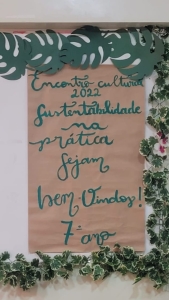 Encontro cultural
2022
Sustentabilidade
na
prática
Sejam
bem-Vindos!
7º ano